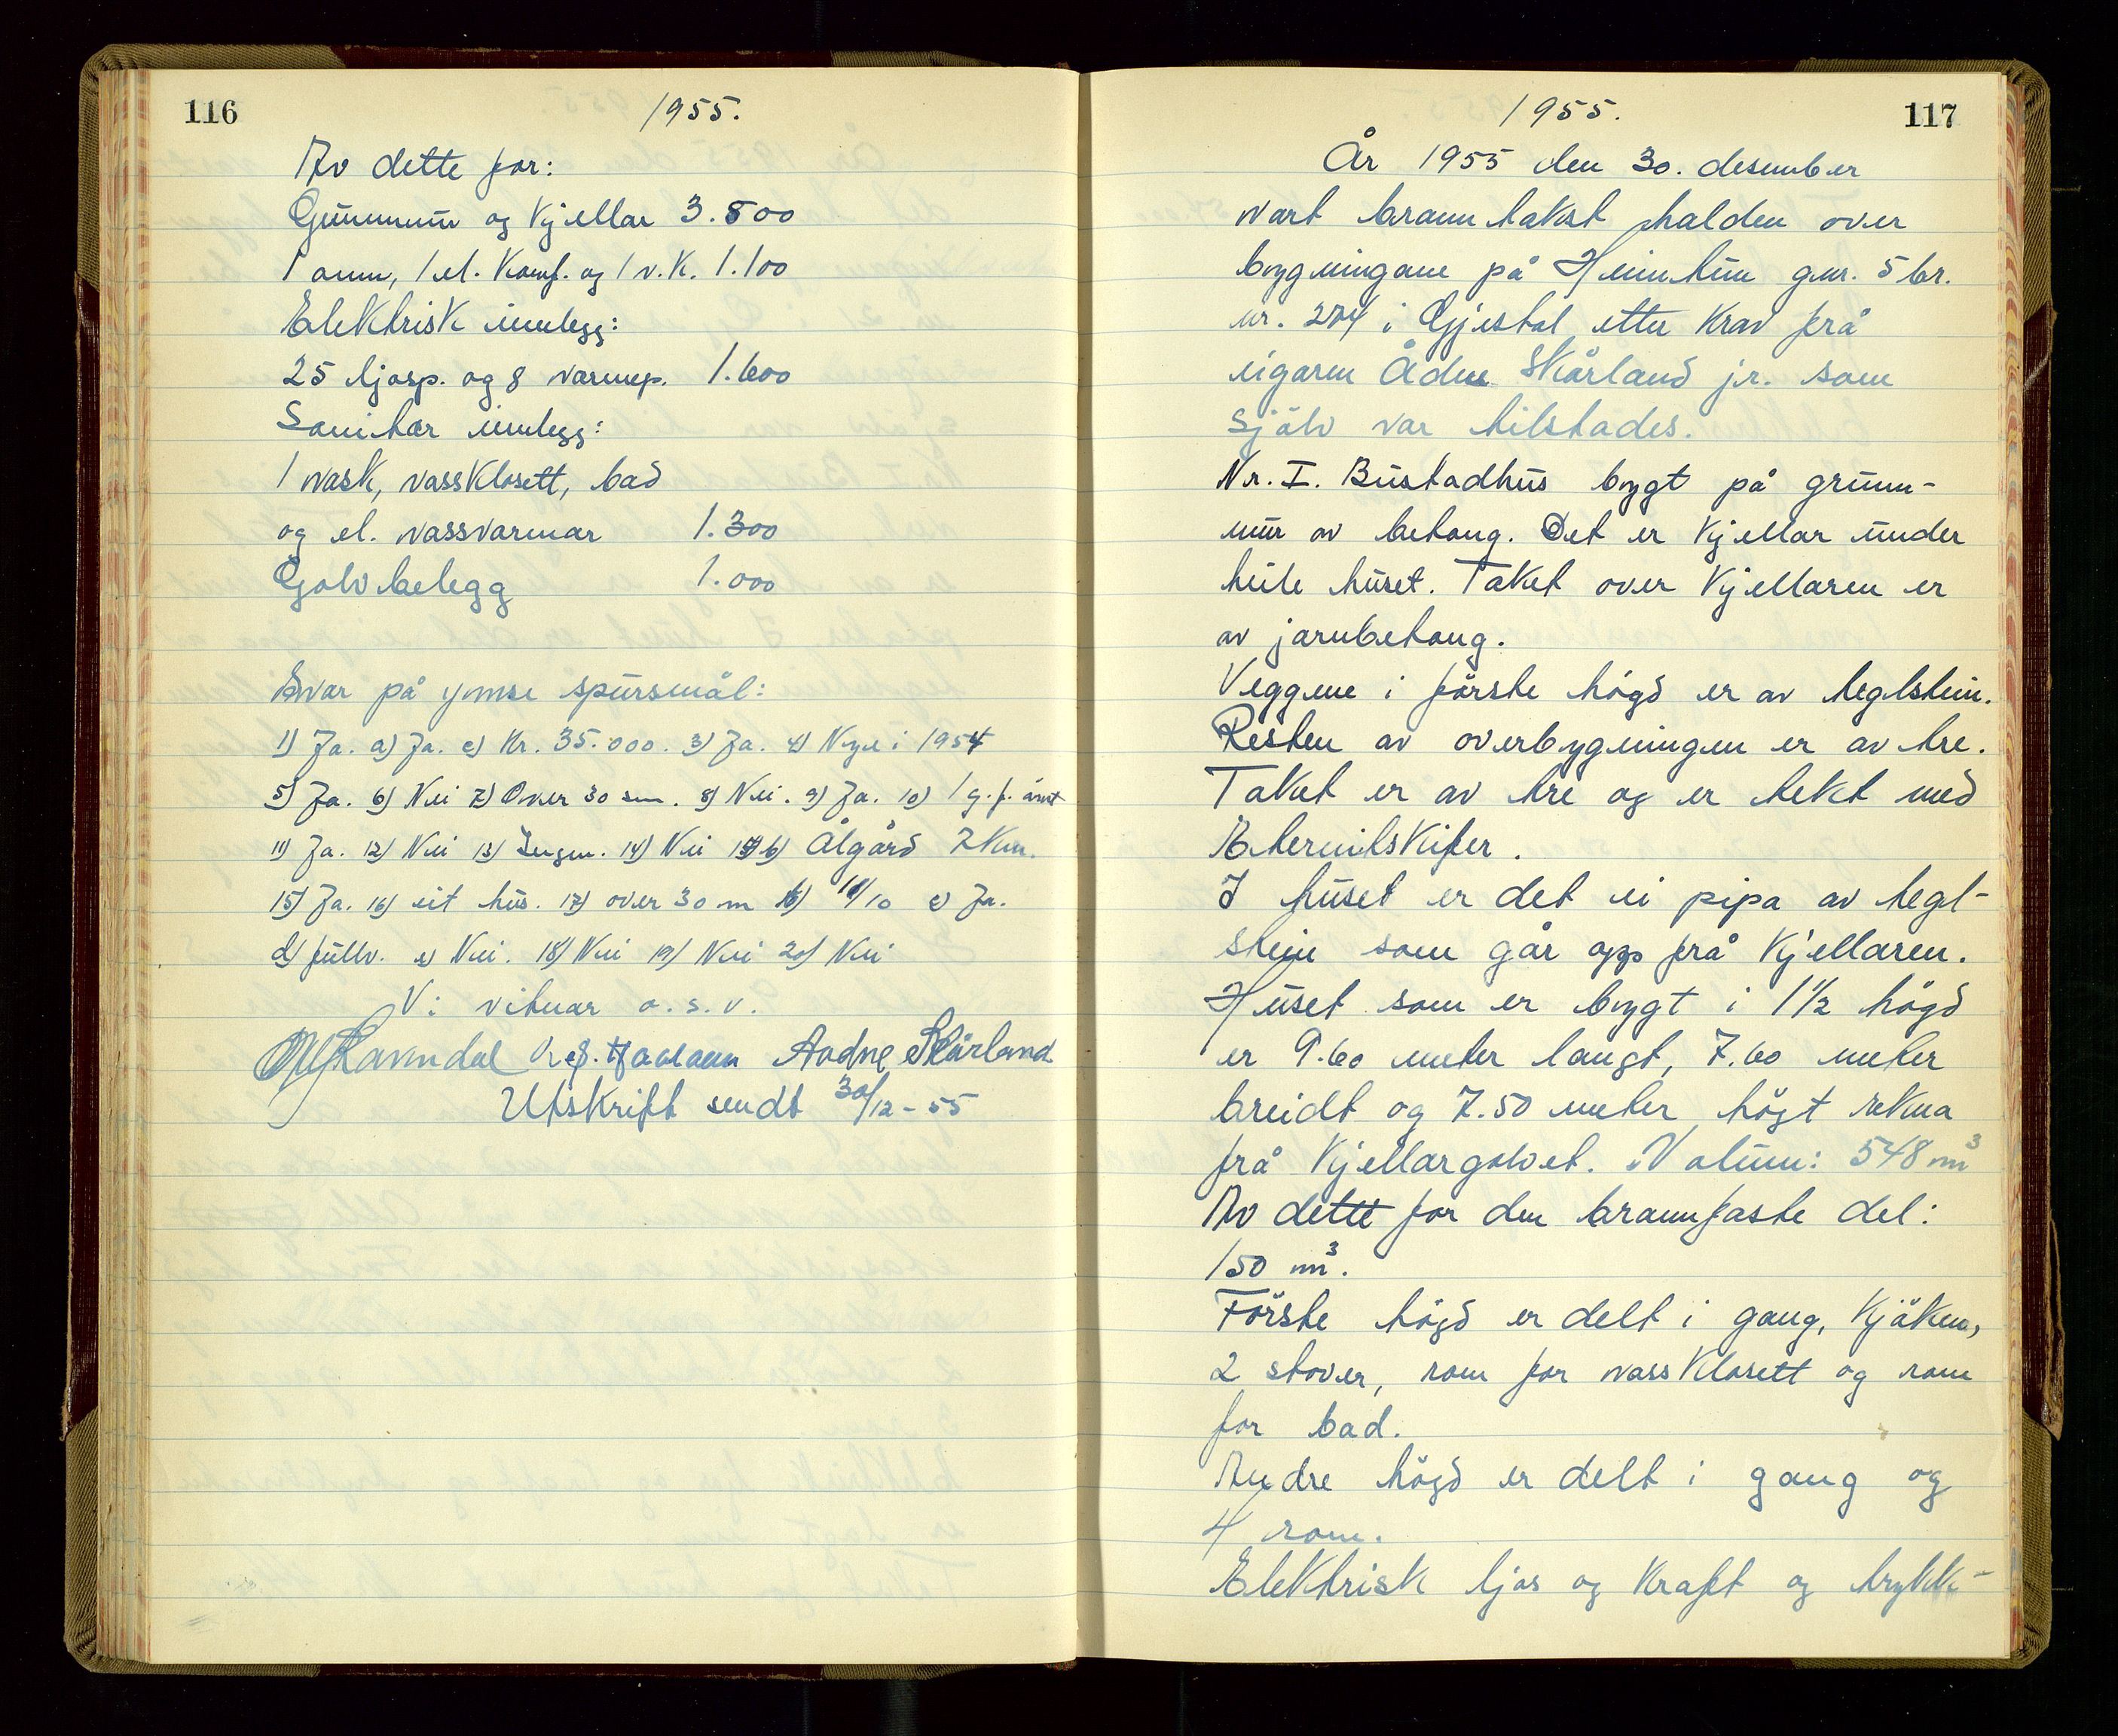 116
1955.
Av dette for:
Grunnmur og Kjellar 3.800
1 omn, 1 el. Komf. og 1 v.K. 1.100
Elektrisk innlegg:
25 ljosp. og 8 varmep. 1.600
Sanitær innlegg:
1 vask, vassklosett, bad
og el. vassvarmar 1.300
Golvbelegg 1.000
Svar på ymse spursmål:
1) Ja. a) Ja. c) Kr. 35.000. 3) Ja. 4) Nye i 1954
5) Ja. 6) Nei 7) Over 30 sm. 8) Nei. 9) Ja. 10) 1 g. f. året
11) Ja. 12) Nei 13) Ingen. 14) Nei b) Ålgård 7 Km.
15) Ja. 16) eit hus. 17) over 30 m b) 10/10 c) Ja.
d) fullv. e) Nei. 18) Nei 19) Nei 20) Nei
V: vitnar o.s.v.
Aadne Skårland
Utskrift sendt 30/12-55
1955.
117
År 1955 den 30. desember
vart branntakst halden over
bygningane på Heimtun gnr. 5 br.
nr. 204 i Gjestal etter Krav frå
eigaren Ådne Skårland jr. som
sjölv var tilstades.
Nr. I. Bustadhus bygt på grunn-
mur av betong. Det er Kjellar under
heile huset. Taket over Kjellaren er
av jarnbetong.
Veggene i förste högd er av teglstein.
Resten av overbygningen er av tre.
Taket er av tre og er tekt med
Eternitskifer.
I huset er det ei pipa av tegl-
stein som går opp frå Kjellaren.
Huset som er bygt i 1 1/2 högd
er 9.60 meter langt, 7.60 meter
breidt og 7.50 meter högt rekna
frå Kjellargolvet. Volum: 548 m³
Av dette for den brannfaste del:
150 m³.
Förste högd er delt i gang, Kjöken,
2 stover, rom for vassklosett og rom
for bad.
Andre högd er delt i gang og
4 rom.
Elektrisk ljos og Kraft og trykk-